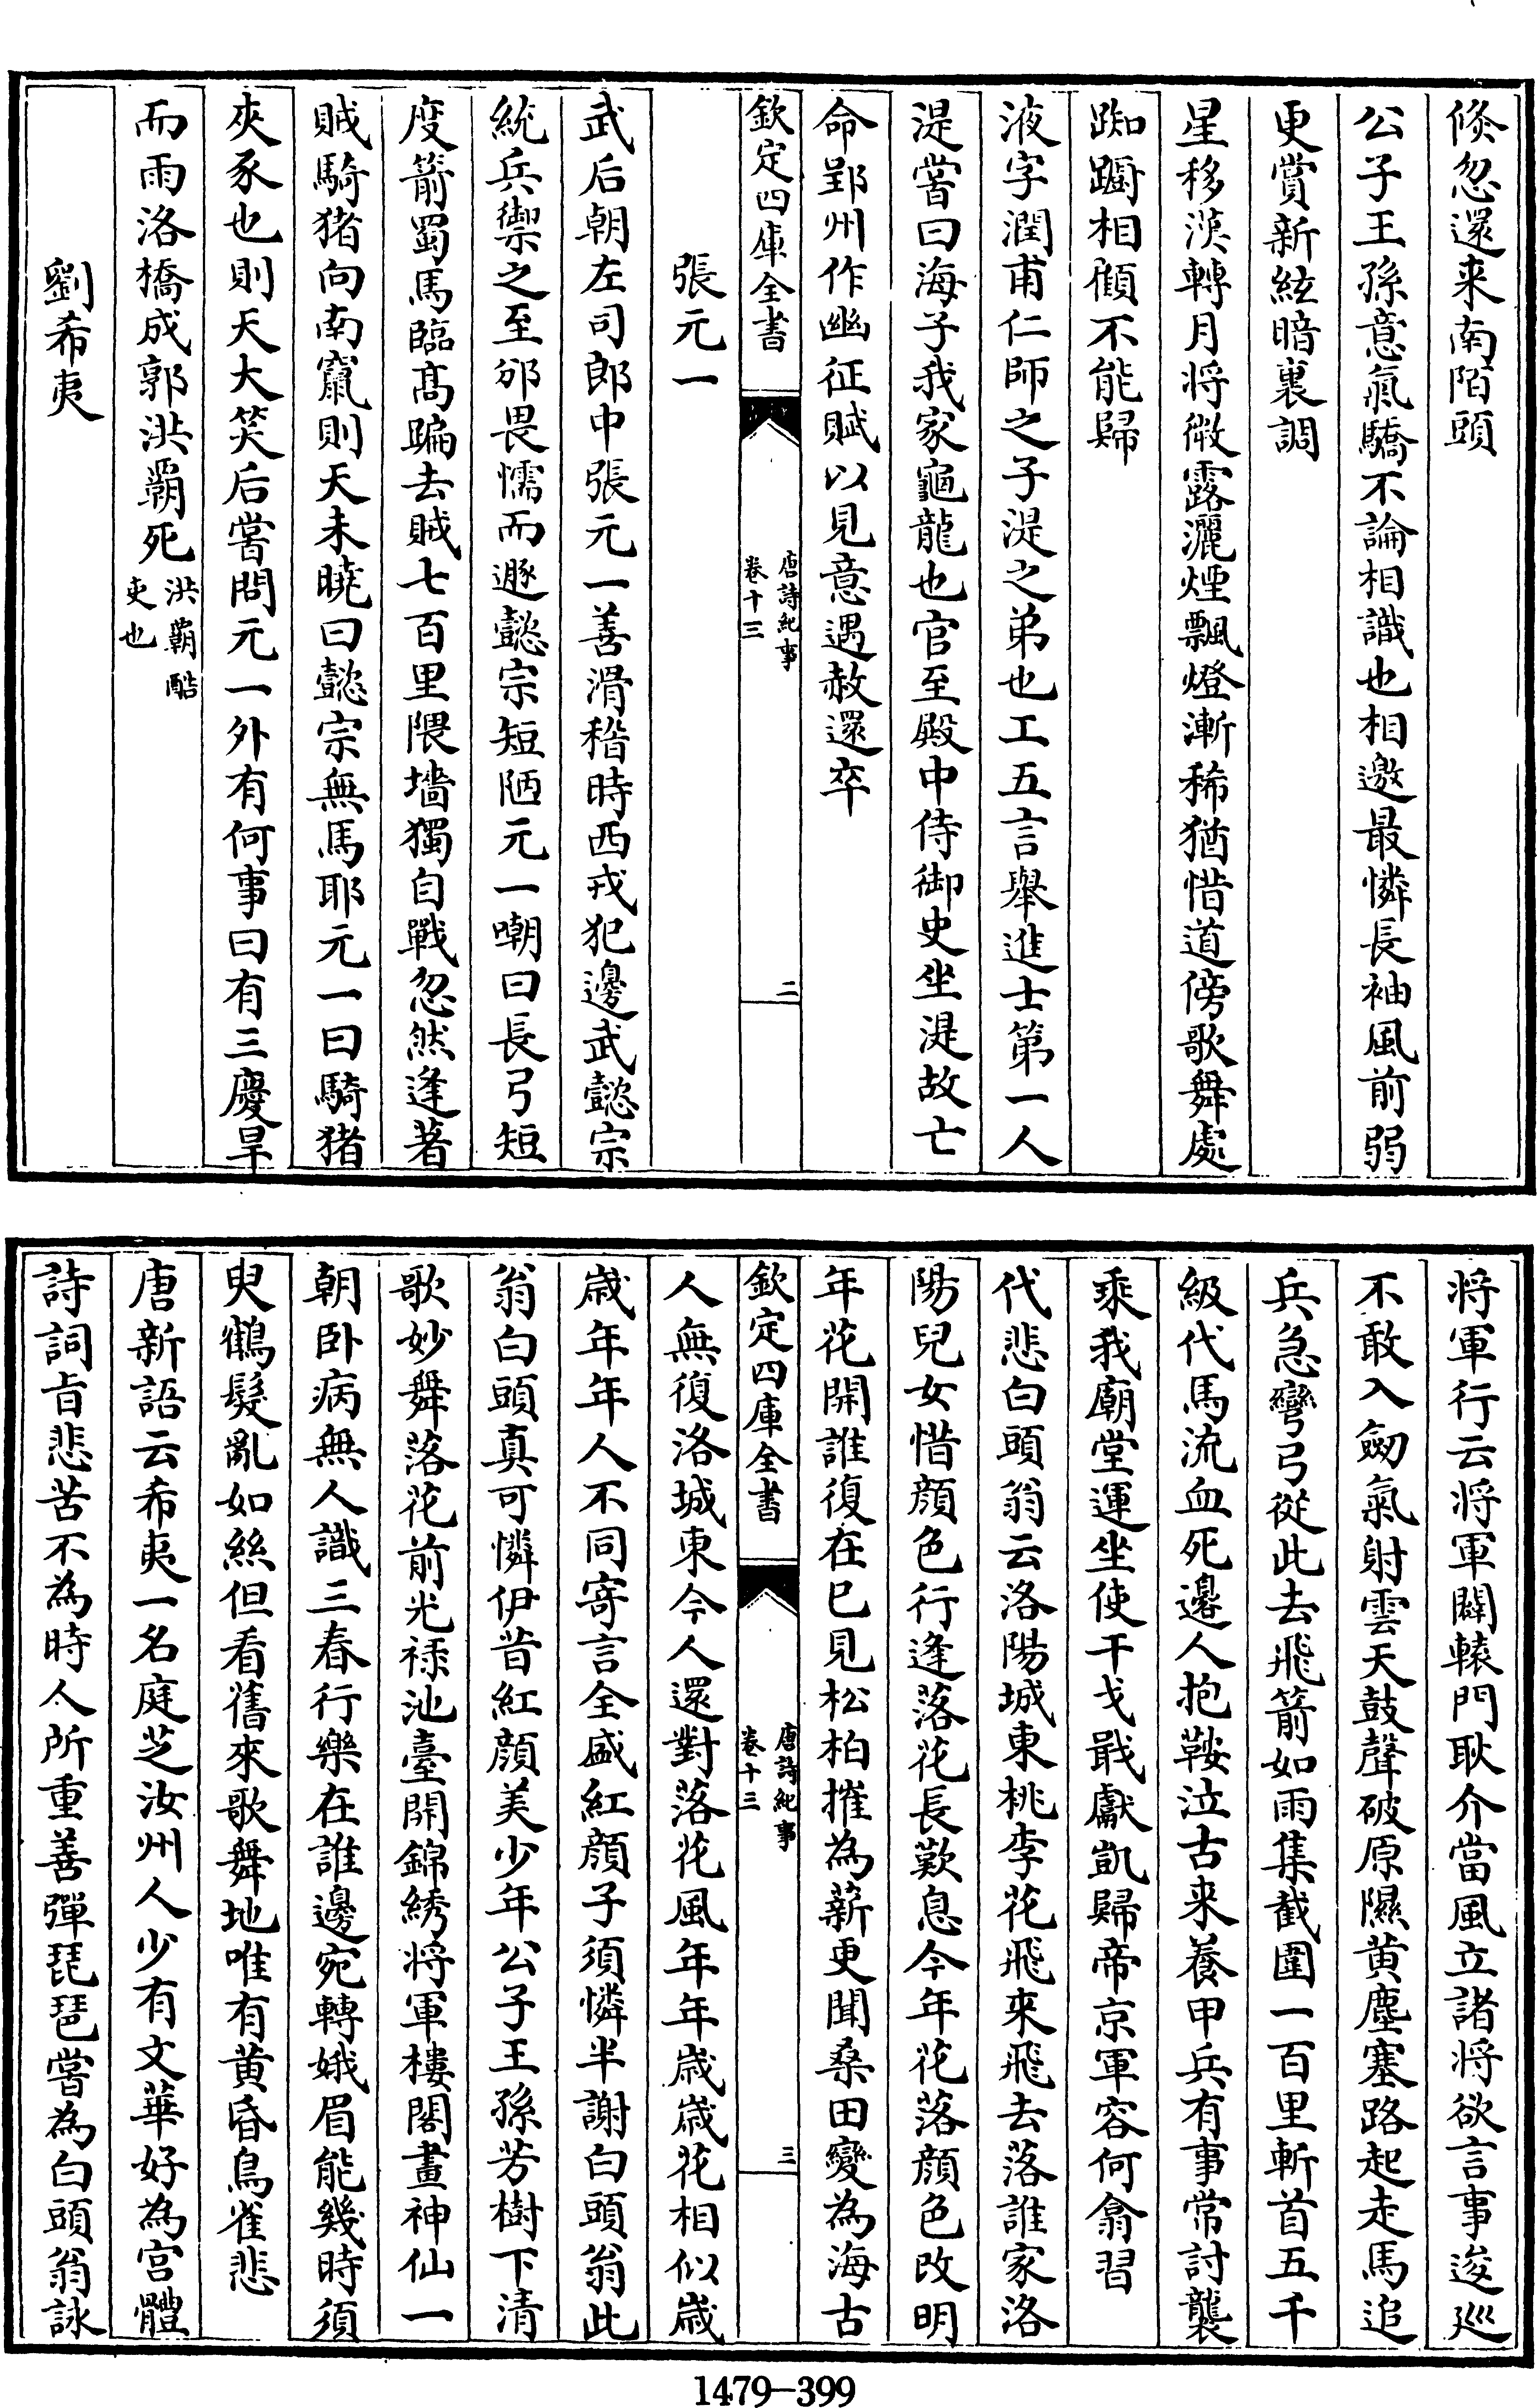 倐忽還来南陌頭
公子王孫意氣驕不論相識也相邀最憐長袖風前弱
更賞新絃暗裏調
星移漢轉月将微露灑煙飄燈漸稀猶惜道傍歌舞處
踟躕相顧不能歸
液字潤甫仁師之子湜之弟也工五言舉進士第一人
湜嘗曰海子我家龜龍也官至殿中侍御史坐湜故亡
命郢州作幽征賦以見意遇赦還卒
欽定四庫全書
唐詩紀事
卷十三
二
張元一
武后朝左司郎中張元一善滑稽時西戎犯邊武懿宗
統兵禦之至邠畏懦而遯懿宗短陋元一嘲曰長弓短
度箭蜀馬臨髙騙去賊七百里隈墻獨自戰忽然逢著
賊騎猪向南竄則天未曉曰懿宗無馬耶元一曰騎猪
夾豕也則天大笑后嘗問元一外有何事曰有三慶旱
而雨洛橋成郭洪霸死
洪霸酷
吏也
劉希夷
将軍行云将軍闢轅門耿介當風立諸将欲言事逡巡
不敢入劒氣射雲天鼓聲破原隰黄塵塞路起走馬追
兵急彎弓從此去飛箭如雨集截圍一百里斬首五千
級代馬流血死邊人抱鞍泣古来養甲兵有事常討襲
乘我廟堂運坐使干戈戢獻凱歸帝京軍容何翕習
代悲白頭翁云洛陽城東桃李花飛來飛去落誰家洛
陽兒女惜顔色行逢落花長歎息今年花落顔色改明
年花開誰復在已見松柏摧為薪更聞桑田變為海古
欽定四庫全書
唐詩紀事
卷十三
三
人無復洛城東今人還對落花風年年歲歲花相似歲
歲年年人不同寄言全盛紅顔子須憐半謝白頭翁此
翁白頭真可憐伊昔紅顔美少年公子王孫芳樹下清
歌妙舞落花前光禄池臺開錦綉将軍樓閣畫神仙一
朝卧病無人識三春行樂在誰邊宛轉娥眉能幾時須
臾鶴髮亂如絲但看舊來歌舞地唯有黄昏鳥雀悲
唐新語云希夷一名庭芝汝州人少有文華好為宫體
詩詞㫖悲苦不為時人所重善彈琵琶嘗為白頭翁詠
1479-399